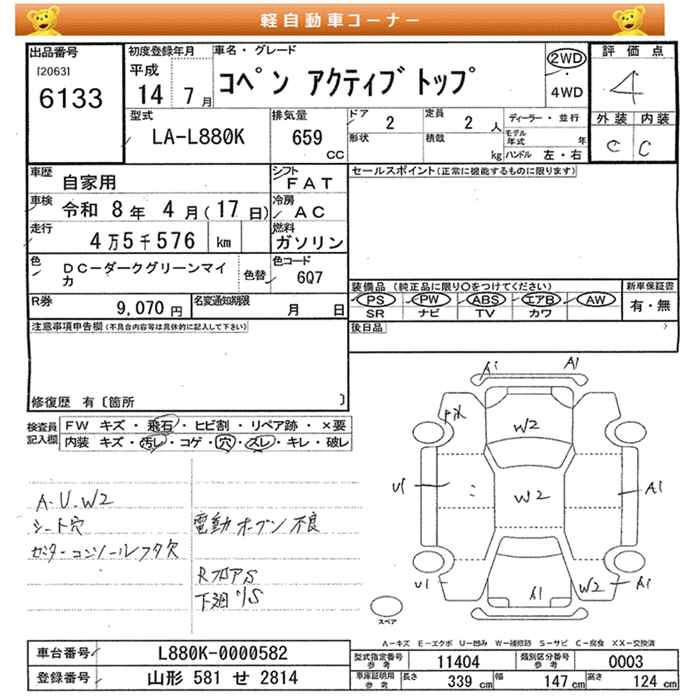 軽自動車コーナー
出品番号 初度登録年月 車名・グレード 評価点
[2063] 平成 コペン アクティブトップ 2WD 4
6133 14 7月 4WD
型式 排気量 ドア 2 定員 2人 ディーラー・並行 外装 内装
LA-L880K 659 CC 形状 積載 kg モデル年式 年 C C
ハンドル 左・右
車歴 自家用 シフト FAT セールスポイント(正常に機能するものに限ります)
車検 令和 8年 4月(17日) 冷房 AC
走行 4万5千576 km 燃料 ガソリン
色 DC-ダークグリーンマイカ 色替 色コード 6Q7
装備品(純正品に限り○をつけてください) 新車保証書
PS PW ABS エアB AW 有・無
SR ナビ TV カワ
R券 9,070円 名変通知期限 月 日
注意事項申告欄(不具合内容等は具体的に記入して下さい) 後日品
修復歴 有〔箇所 〕
検査員記入欄 FW キズ・飛石・ヒビ割・リペア跡・×要
内装 キズ・汚レ・コゲ・穴・ズレ・キレ・破レ
A・U・W2
シート穴 電動オープン不良
センターコンソールフタ欠
RフロアS
下廻りS
A1 A1
W2
U1 W2 A1
U1 A1 W2 A1
スペア
A-キズ E-エクボ U-凹み W-補修跡 S-サビ C-腐食 XX-交換済
車台番号 L880K-0000582 型式指定番号 参考 11404 類別区分番号 参考 0003
登録番号 山形 581 せ 2814 車庫証明用 参考 長さ 339cm 幅 147cm 高さ 124cm